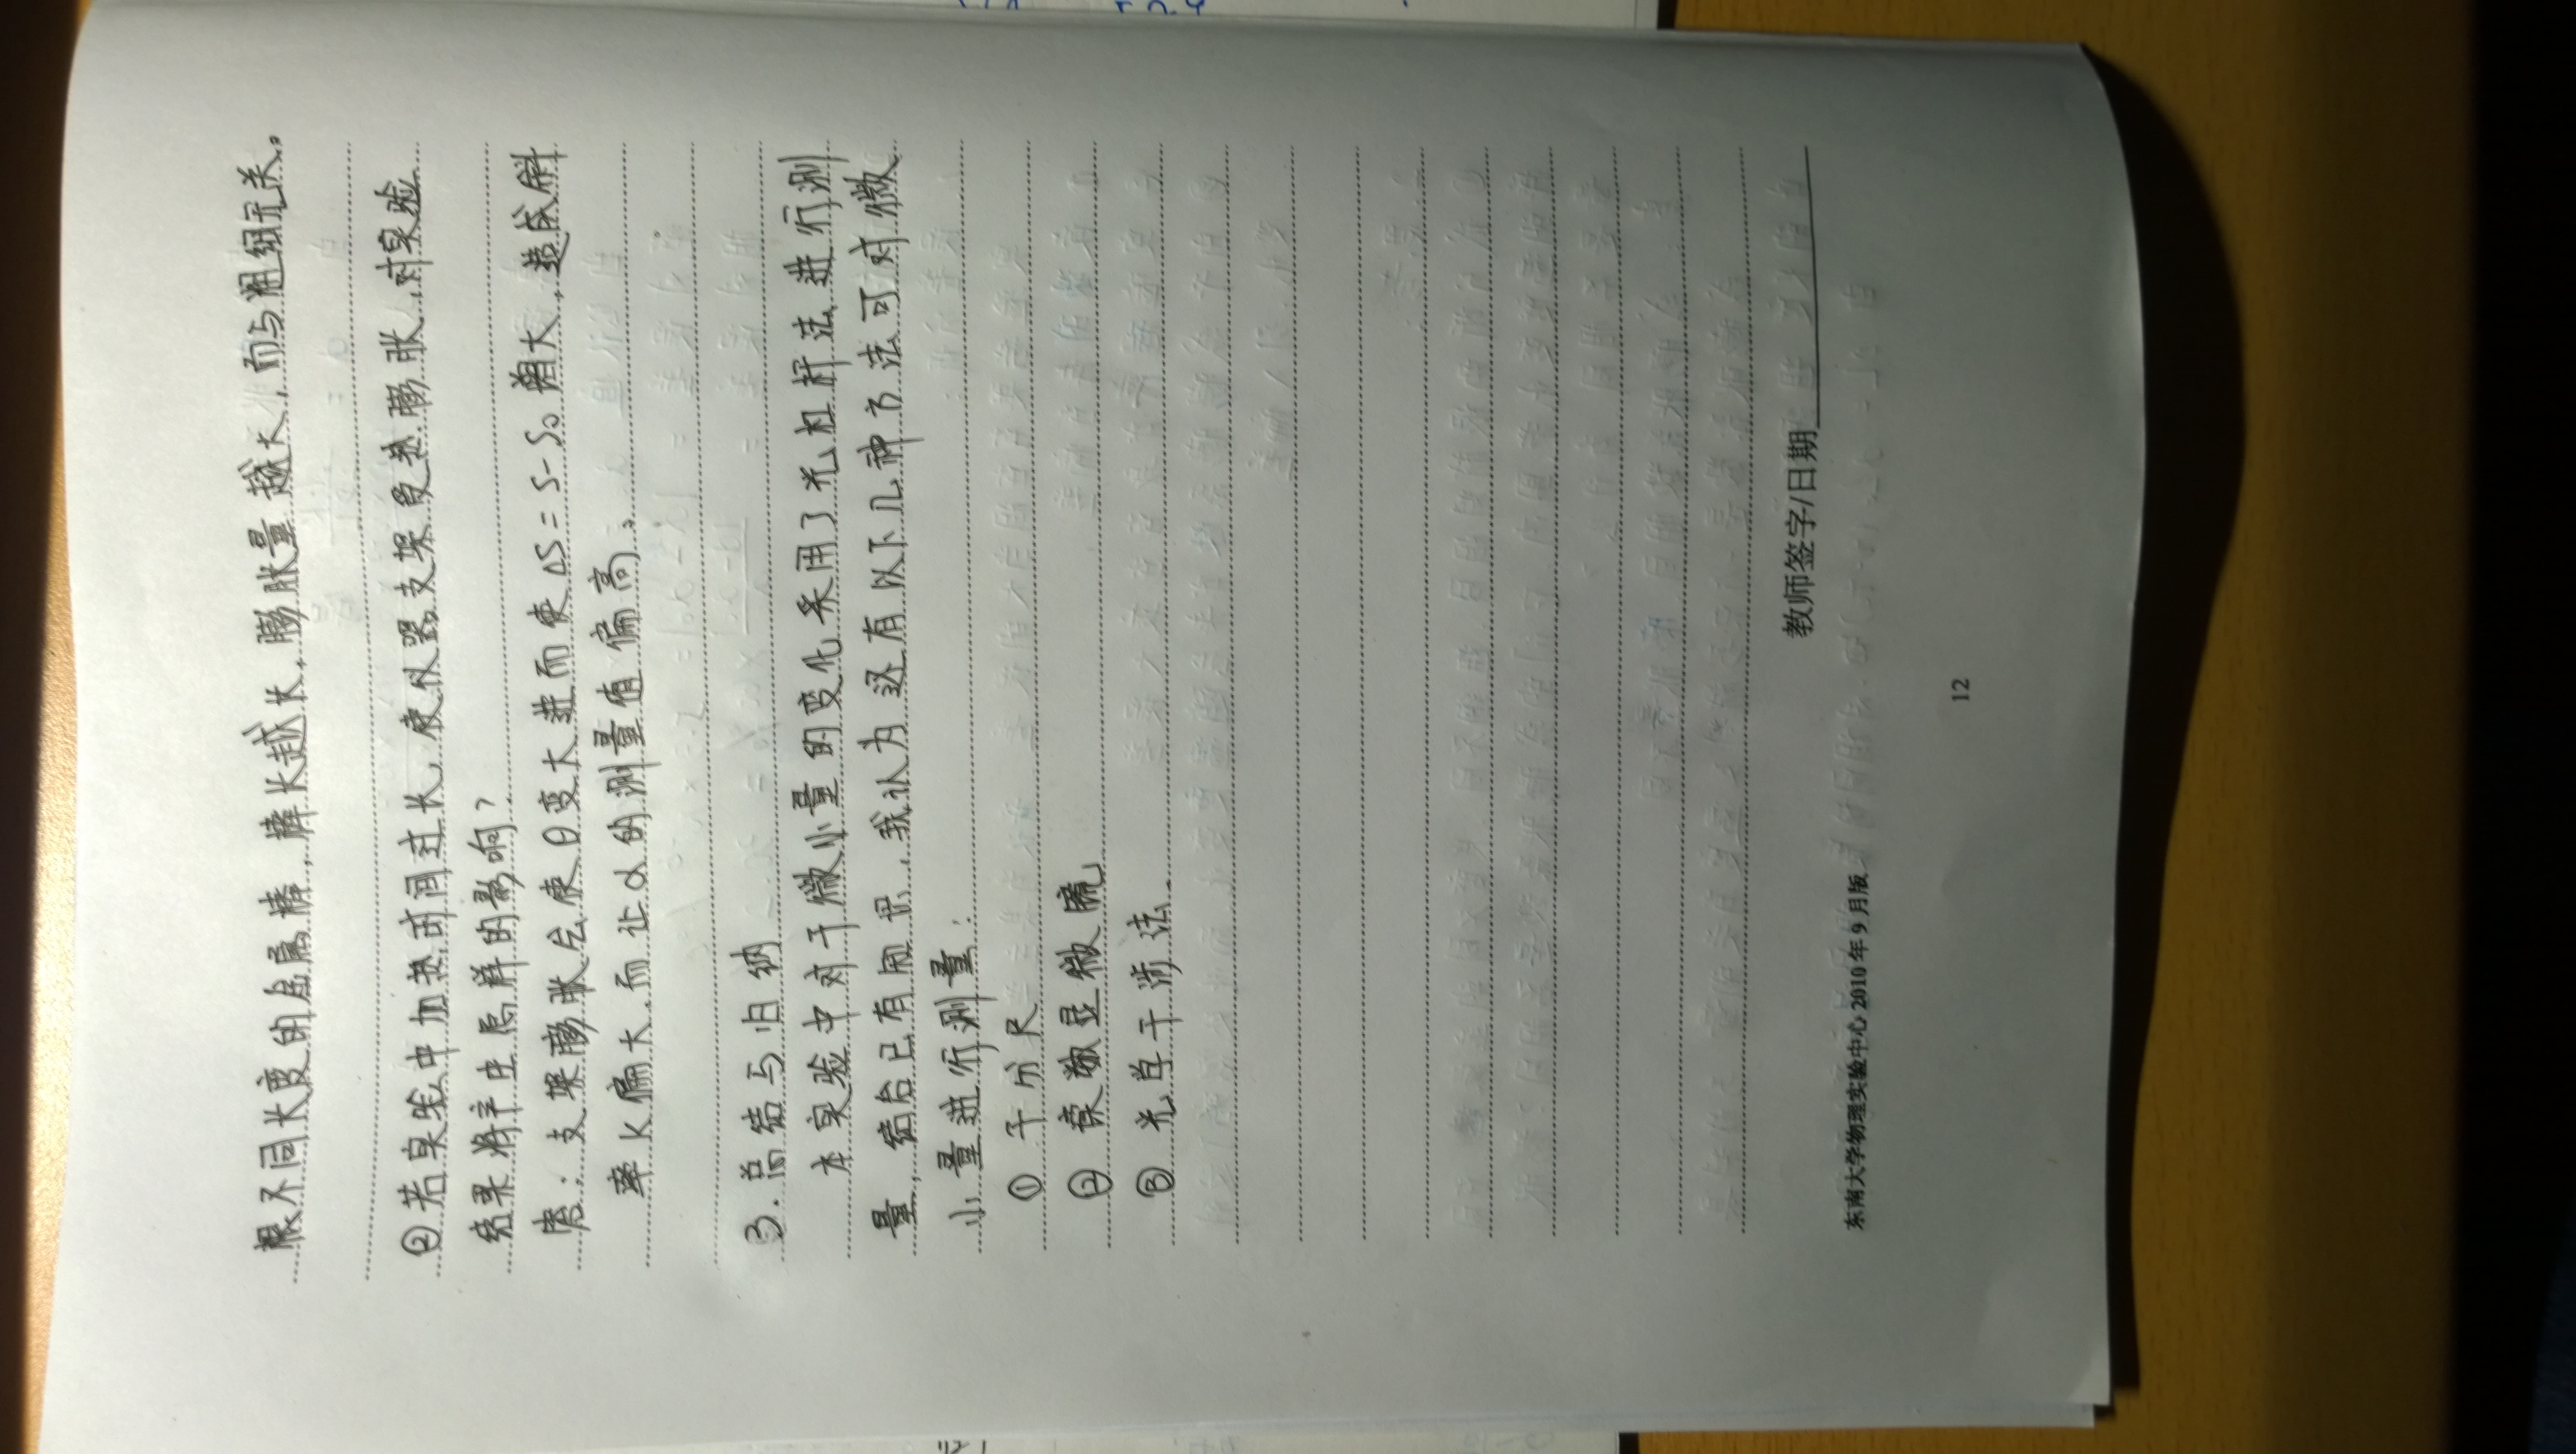 根不同长度的金属棒，棒长越长，膨胀量越大，而与粗细无关。
②若实验中加热时间过长，使仪器支架受热膨胀，对实验
结果将产生怎样的影响？
答：支架膨胀后使θ变大进而使ΔS=S-S₀增大，造成斜
率K偏大，而让α的测量值偏高。
3.总结与归纳
本实验中对于微小量的变化采用了光杠杆法进行测
量，结合已有知识，我认为还有以下几种方法可对微
小量进行测量：
①千分尺
②读数显微镜
③光学干涉法
教师签字/日期
东南大学物理实验中心2010年9月版
12